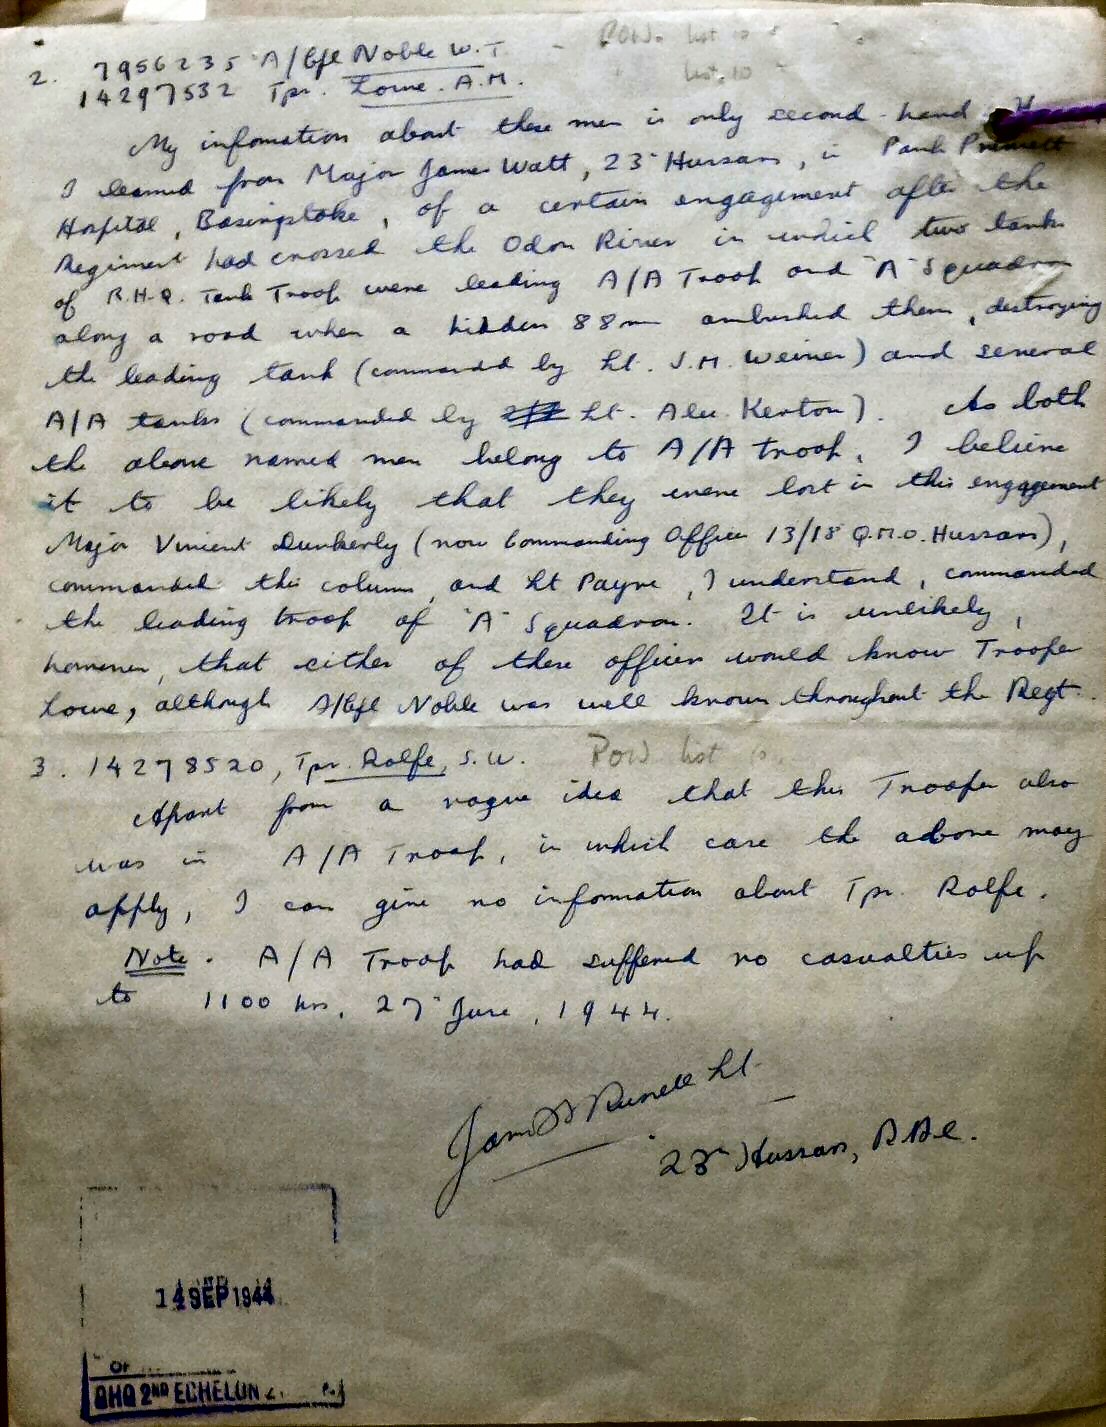 POW. list 10
list. 10
2. 7956235 A/Cpl Noble W.T.
14297532 Tpr. Lowe. A.M.
My infomation about these men is only second-hand.
I learned from Major James Watt, 23rd Hussars, in Park Prewett
Hospital, Basingstoke, of a certain engagement after the
Regiment had crossed the Odon River in which two tanks
of R.H.Q. Tank Troop were leading A/A Troop and "A" Squadron
along a road when a hidden 88mm ambushed them, destroying
the leading tank (commanded by Lt. J.M. Weiner) and several
A/A tanks (commanded by Lt. Alec Kerton). As both
the above named men belong to A/A troop, I believe
it to be likely that they were lost in this engagement
Major Vincent Dunkerly (now Commanding Officer 13/18 Q.M.O. Hussars),
commanded this column, and Lt Payne, I understand, commanded
the leading troop of "A" Squadron. It is unlikely,
however, that either of these officers would know Trooper
Lowe, although A/Cpl Noble was well known throughout the Regt.
3. 14278520, Tpr. Rolfe, S.W. POW list 10.
Apart from a vague idea that this Trooper also
was in A/A Troop, in which case the above may
apply, I can give no information about Tpr. Rolfe.
Note. A/A Troop had suffered no casualties up
to 1100 hrs, 27th June, 1944.
Lt
23rd Hussars, R.A.C.
14 SEP 1944
OF
GHQ 2ND ECHELON